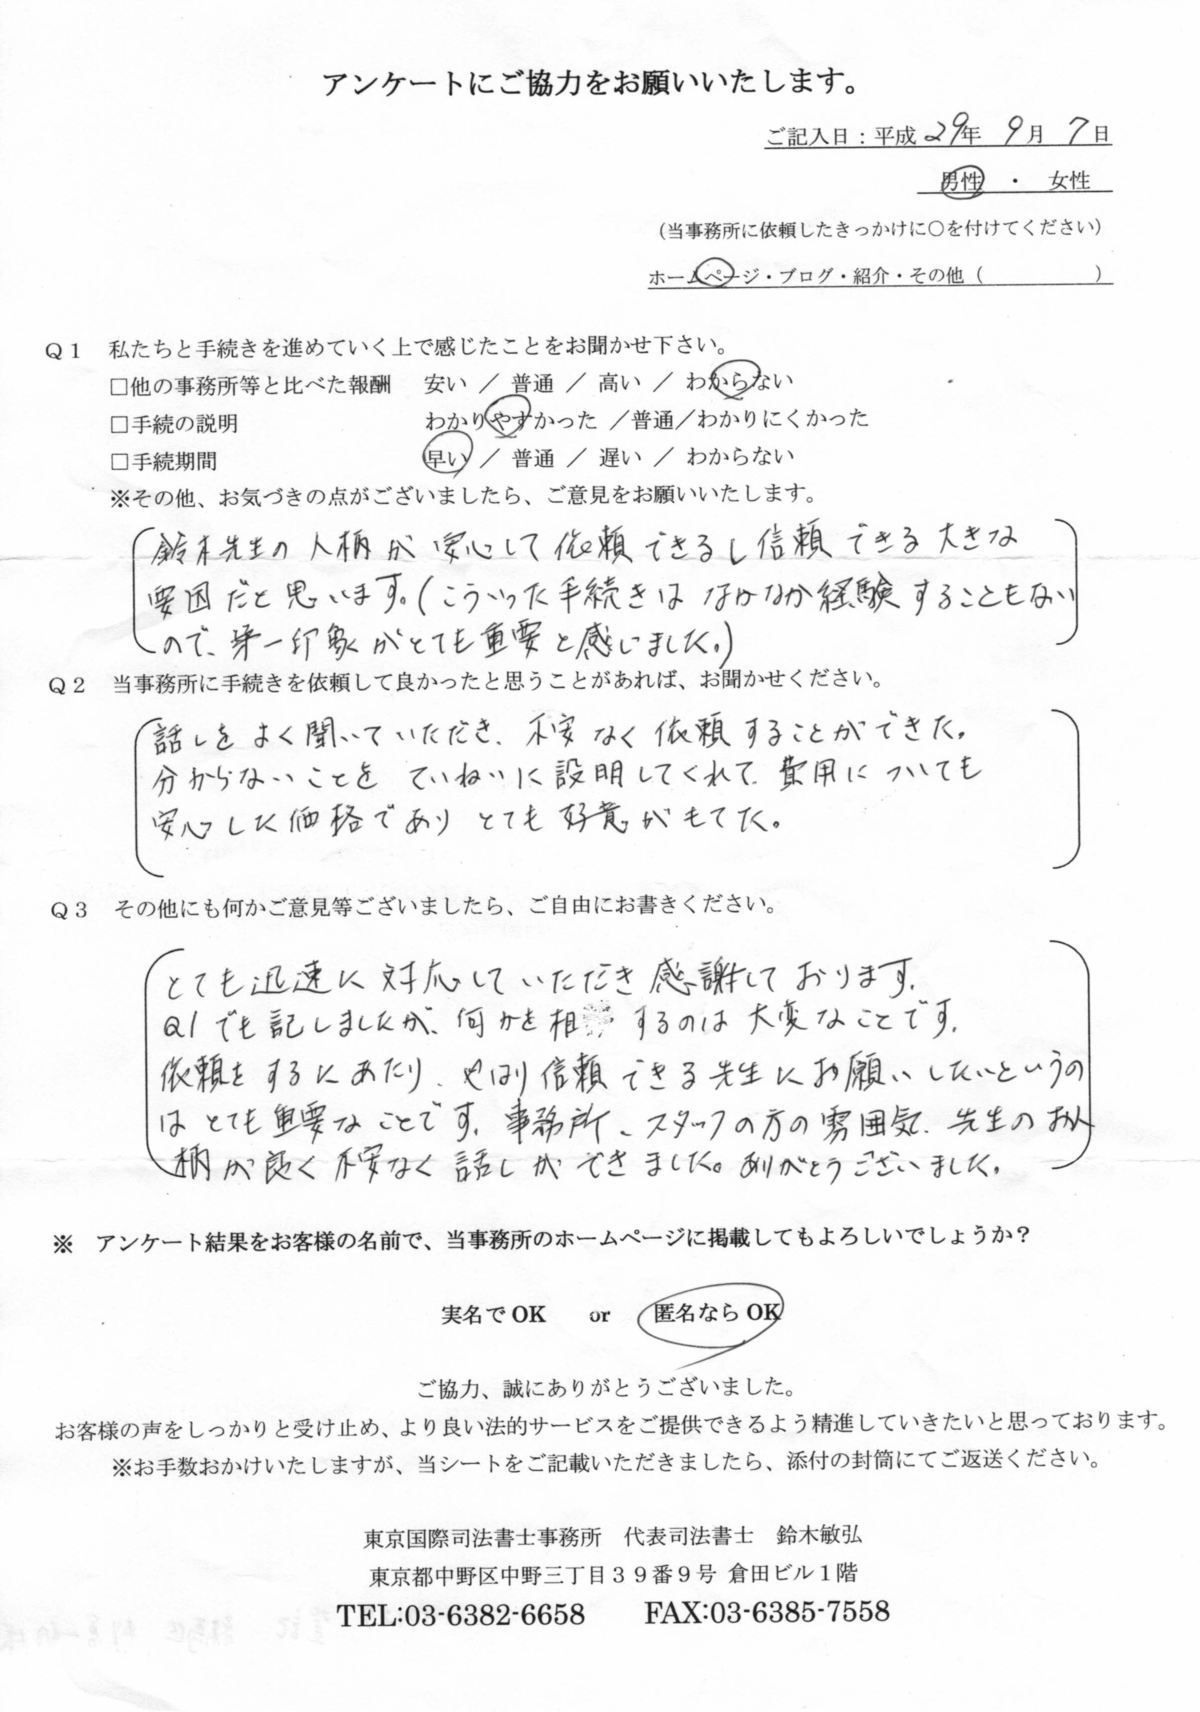 アンケートにご協力をお願いいたします。
ご記入日：平成 29年 9月 7日
男性 ・ 女性
（当事務所に依頼したきっかけに○を付けてください）
ホームページ・ブログ・紹介・その他（ ）
Q１ 私たちと手続きを進めていく上で感じたことをお聞かせ下さい。
□他の事務所等と比べた報酬 安い ／ 普通 ／ 高い ／ わからない
□手続の説明 わかりやすかった ／普通／わかりにくかった
□手続期間 早い ／ 普通 ／ 遅い ／ わからない
※その他、お気づきの点がございましたら、ご意見をお願いいたします。
鈴木先生の人柄が安心して依頼できるし信頼できる大きな
要因だと思います。(こういった手続きはなかなか経験することもない
ので、第一印象がとても重要と感じました。)
Q２ 当事務所に手続きを依頼して良かったと思うことがあれば、お聞かせください。
話しをよく聞いていただき、不安なく依頼することができた。
分からないことをていねいに説明してくれて、費用についても
安心した価格でありとても好意がもてた。
Q３ その他にも何かご意見等ございましたら、ご自由にお書きください。
とても迅速に対応していただき感謝しております。
Q1でも記しましたが、何かを相 するのは大変なことです。
依頼をするにあたり、やはり信頼できる先生にお願いしたいというの
はとても重要なことです。事務所、スタッフの方の雰囲気、先生のお人
柄が良く不安なく話しができました。ありがとうございました。
※ アンケート結果をお客様の名前で、当事務所のホームページに掲載してもよろしいでしょうか？
実名でOK or 匿名ならOK
ご協力、誠にありがとうございました。
お客様の声をしっかりと受け止め、より良い法的サービスをご提供できるよう精進していきたいと思っております。
※お手数おかけいたしますが、当シートをご記載いただきましたら、添付の封筒にてご返送ください。
東京国際司法書士事務所 代表司法書士 鈴木敏弘
東京都中野区中野三丁目３９番９号 倉田ビル１階
TEL:03-6382-6658 FAX:03-6385-7558